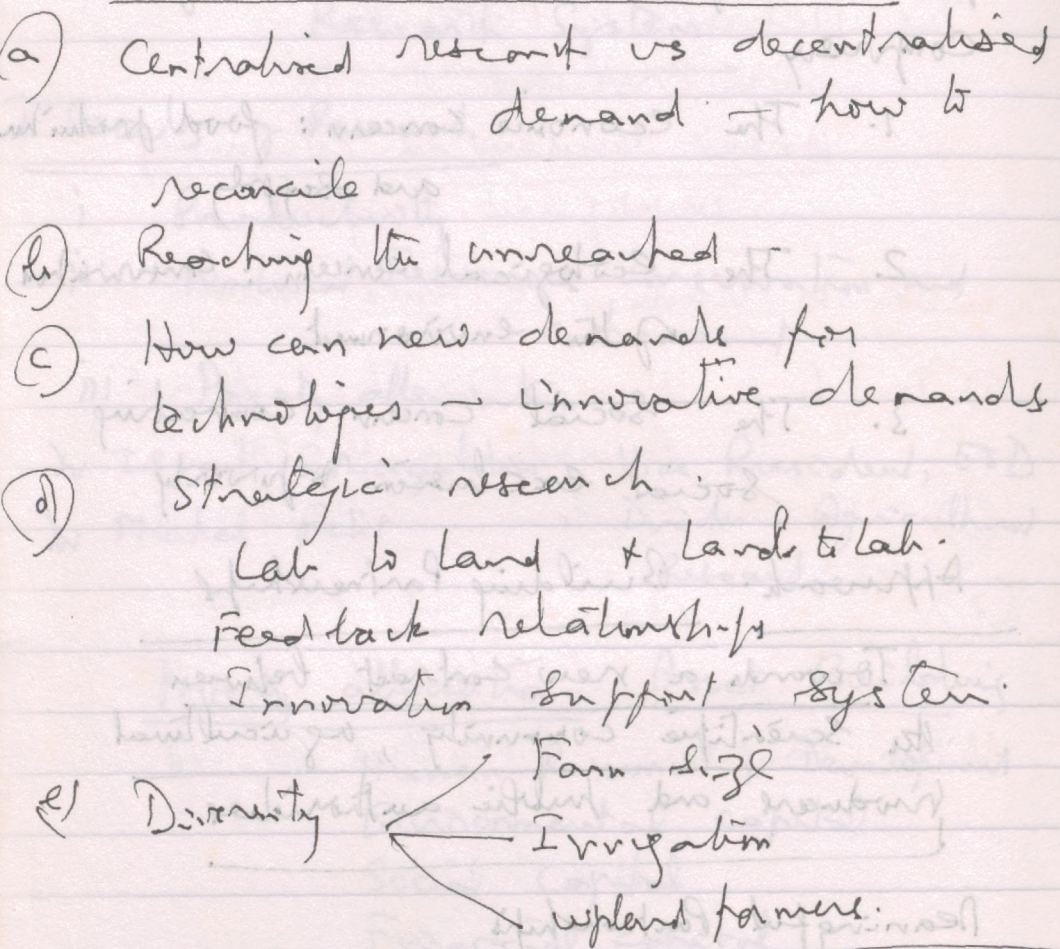 a) Centralised research vs decentralised
demand - how to
reconcile
b) Reaching the unreached -
c) How can new demands for
technologies - innovative demands
d) Strategic research.
Lab to Land & Land to Lab.
Feedback relationships
Innovation support system.
e) Diversity
Farm size
Irrigation
upland farmers.